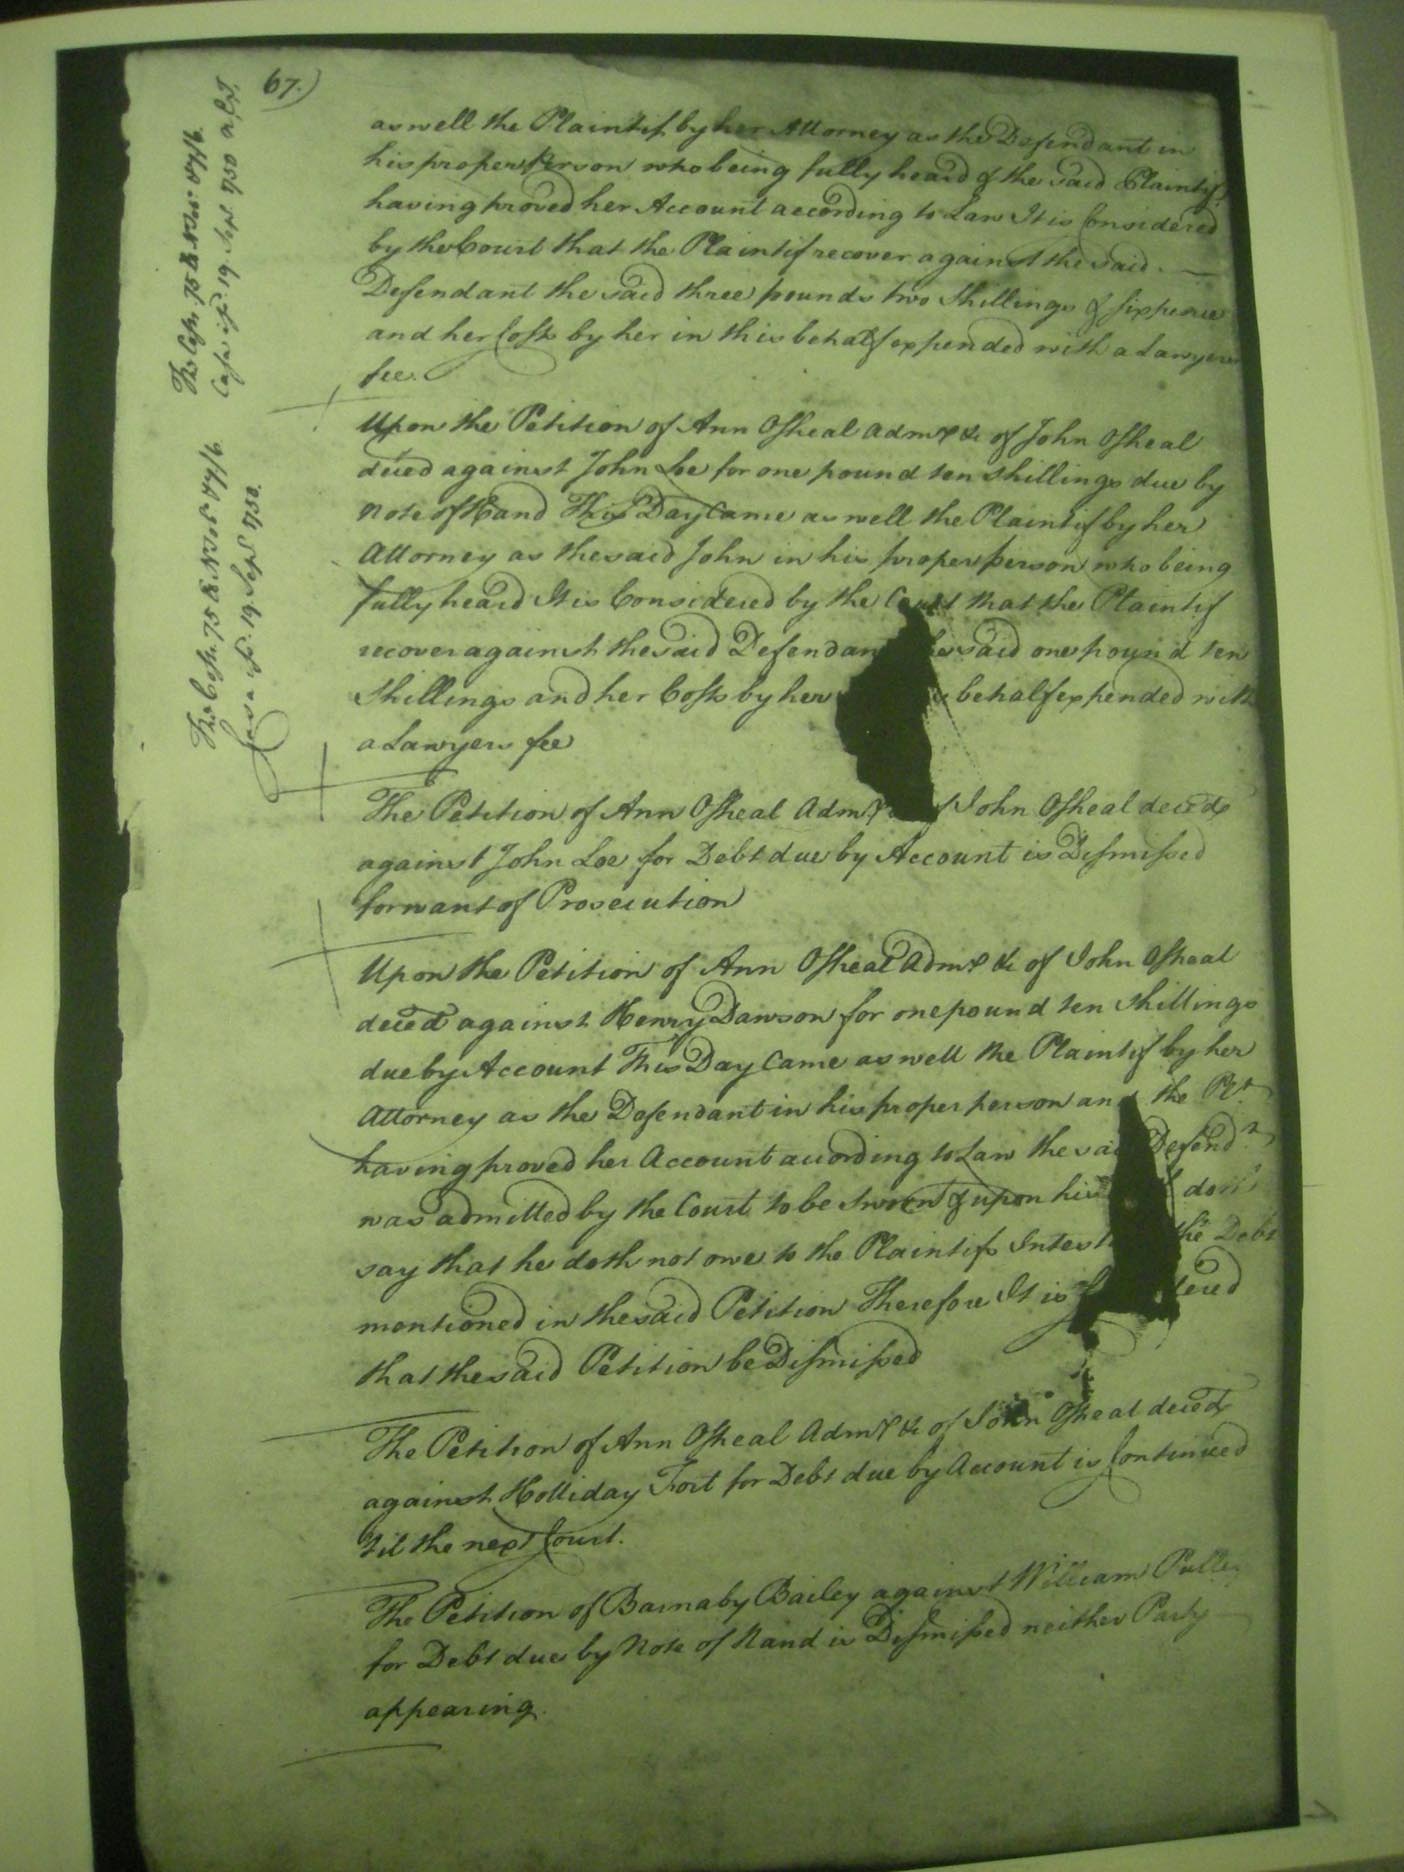 67.)
as well the Plaintif by her Attorney as the Defendant in
his proper Person who being fully heard & the said Plaintif
having proved her Account according to Law It is Considered
by the Court that the Plaintif recover against the said
Defendant the said three pounds two Shillings & sixpence
and her Costs by her in this behalf expended with a Lawyers
fee.
Upon the Petition of Ann OSheal Admx &c of John OSheal
deced against John Loe for one pound ten shillings due by
Note of Hand This Day Came as well the Plaintif by her
Attorney as the said John in his proper person who being
fully heard It is Considered by the Court that the Plaintif
recover against the said Defendan he said one pound ten
Shillings and her Costs by her behalf expended with
a Lawyers fee
The Petition of Ann OSheal Admx of John OSheal deced
against John Loe for Debt due by Account is Dismissed
for want of Prosecution
Upon the Petition of Ann OSheal Admx &c of John OSheal
deced against Henry Dawson for one pound ten Shillings
due by Account This Day Came as well the Plaintif by her
Attorney as the Defendant in his proper person and the Plt
having proved her Account according to Law the sai Defendt
was admitted by the Court to be Sworn & upon his doth
say that he doth not owe to the Plaintifs Intest the Debt
mentioned in the said Petition Therefore It is dered
that the said Petition be Dismissed
The Petition of Ann OSheal Admx &c of John OSheal deced
against Holliday Fort for Debt due by Account is Continued
til the next Court.
The Petition of Barnaby Bailey against William Pulley
for Debt due by Note of Hand is Dismissed neither Party
appearing.
The Costs 75 lb Tobo &7/6
Casa isd. 19 Sept. 1750
The Costs 75 lb Tobo &7/6
Casa isd. 19 Sept 1750.